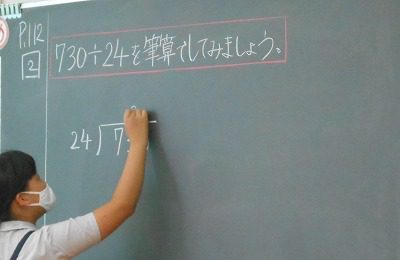 P.112
2
730÷24を筆算でしてみましょう。
24 7